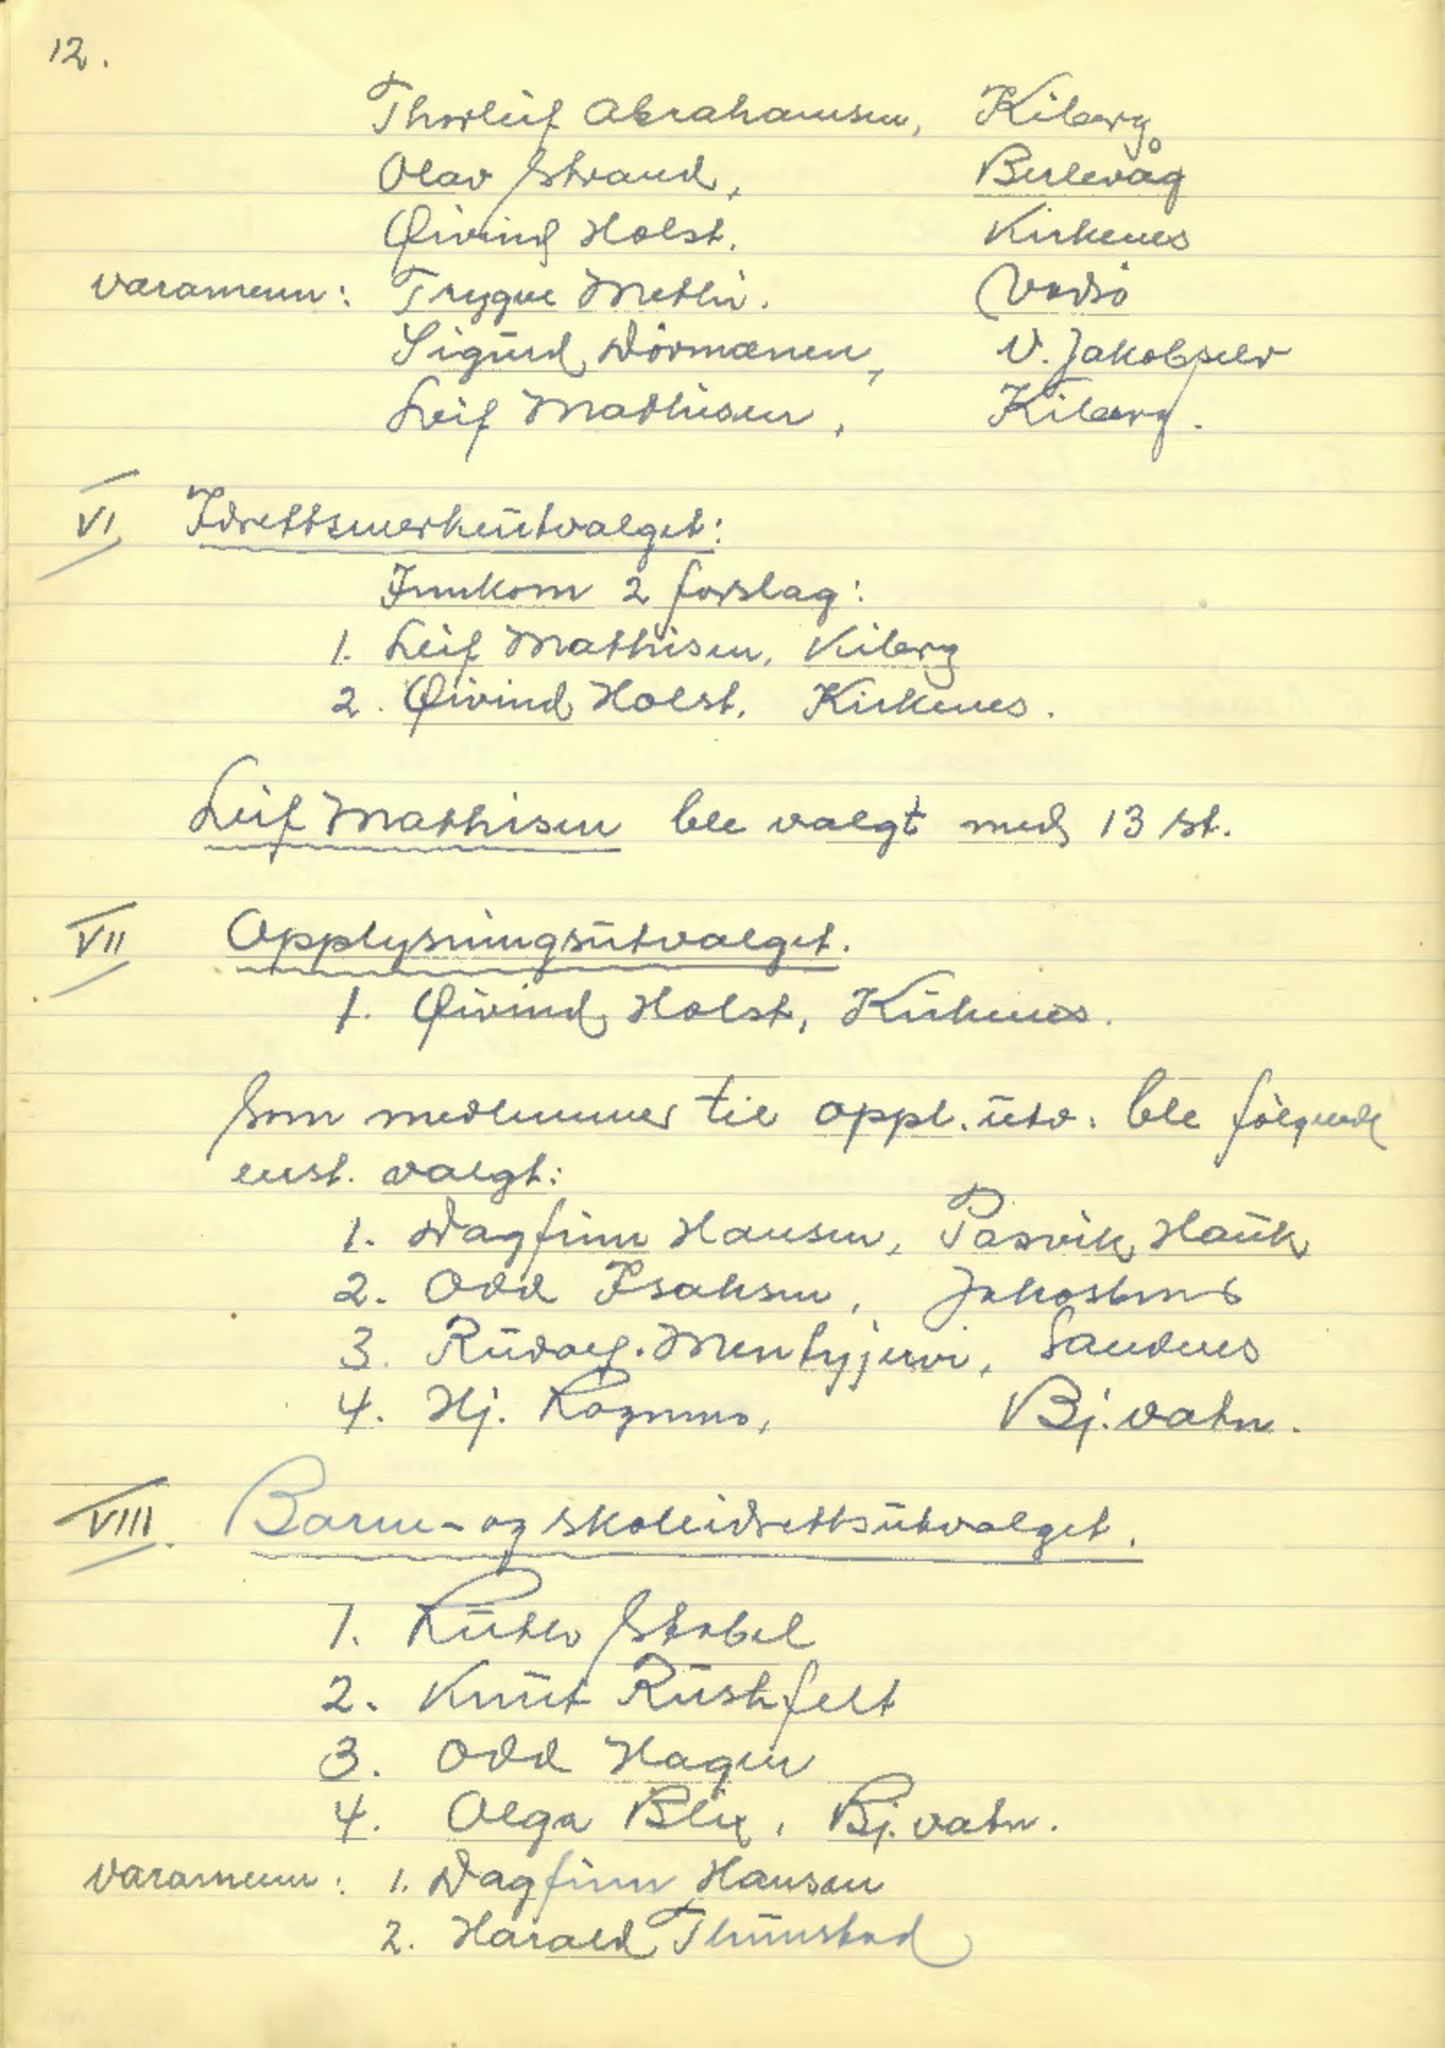 12.
Thorleif Abrahamsen, Kiberg
Olav Strand, Berlevåg
Øivind Holst, Kirkenes
Varamenn: Trygve Methi. Vadsø
Sigurd Dørmænen, V. Jakobselv
Leif Mathisen, Kiberg.
VI Idrettsmerkeutvalget:
Innkom 2 forslag:
1. Leif Mathisen, Kiberg
2. Øivind Holst, Kirkenes.
Leif Mathisen ble valgt med 13 st.
VII Opplysningsutvalget.
1. Øivind Holst, Kirkenes.
Som medlemmer til oppl. utv. ble følgende
enst. valgt:
1. Dagfinn Hansen, Pasvik Hauk
2. Odd Isaksen, Jakobsnes
3. Rudolf Mentyjervi, Sandnes
4. Hj. Bj.vatn.
VIII Barne- og skoleidrettsutvalget.
1. Stabel
2. Knut Rushfelt
3. Odd Hagen
4. Olga Blix, Bj.vatn.
Varamenn: 1. Dagfinn Hansen
2. Harald Thunstad